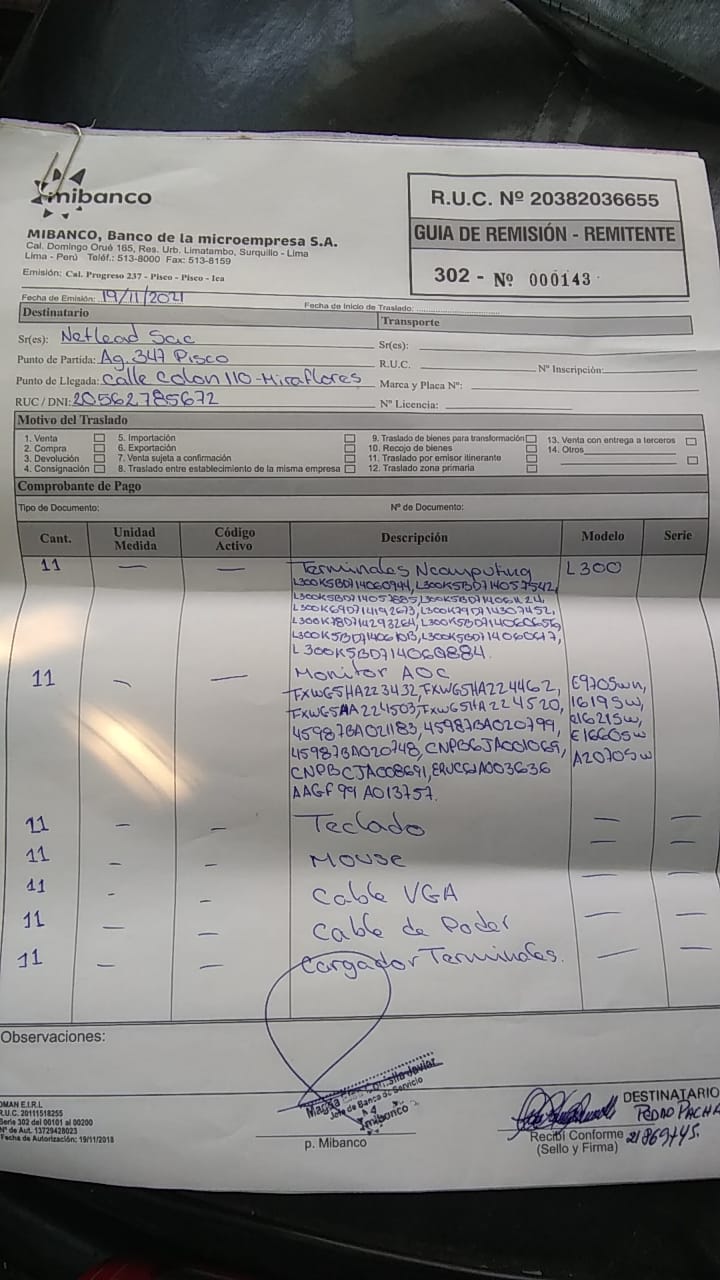 mibanco
MIBANCO, Banco de la microempresa S.A.
Cal. Domingo Orué 165, Res. Urb. Limatambo, Surquillo - Lima
Lima - Perú Teléf.: 513-8000 Fax: 513-8159
Emisión: Cal. Progreso 237 - Pisco - Pisco - Ica
R.U.C. Nº 20382036655
GUIA DE REMISIÓN - REMITENTE
302 - Nº 000143
Fecha de Emisión: 19/11/2021
Fecha de Inicio de Traslado:
Destinatario
Transporte
Sr(es): Netlead Sac
Sr(es):
Punto de Partida: Ag. 347 Pisco
R.U.C.
Nº Inscripción:
Punto de Llegada: Calle Colon 110 - Miraflores
Marca y Placa Nº:
RUC / DNI: 20562785672
Nº Licencia:
Motivo del Traslado
1. Venta
2. Compra
3. Devolución
4. Consignación
5. Importación
6. Exportación
7. Venta sujeta a confirmación
8. Traslado entre establecimiento de la misma empresa
9. Traslado de bienes para transformación
10. Recojo de bienes
11. Traslado por emisor itinerante
12. Traslado zona primaria
13. Venta con entrega a terceros
14. Otros
Comprobante de Pago
Tipo de Documento:
Nº de Documento:
Cant. Unidad Medida Código Activo Descripción Modelo Serie
11 — — Terminales Ncomputing L300
L300K5BD714060944, L300K5BD714057542,
L300K5BD714060617,
L300K5BD714060884.
11 — — Monitor AOC
FXWG5HA223432, FXWG5HA224462, E970Swn,
FXWG5HA224503, FXWG5HA224520, 1619Sw,
45987BA021183, 45987BA020799, 1621Sw,
45987BA020748, CNPBCJA001069, E1660Sw
CNPBCJA008691, A2070Sw
AAGF99A013757.
11 — — Teclado — —
11 — — Mouse —
11 - - Cable VGA — —
11 — — Cable de Poder — —
11 — — Cargador Terminales. — —
Observaciones:
OMAN E.I.R.L
R.U.C. 20111518255
Serie 302 del 00101 al 00200
Nº de Aut. 13729428023
Fecha de Autorización: 19/11/2018
Jefe de Banca de Servicio
mibanco
p. Mibanco
DESTINATARIO
Pedro Pacha
Recibí Conforme
(Sello y Firma)